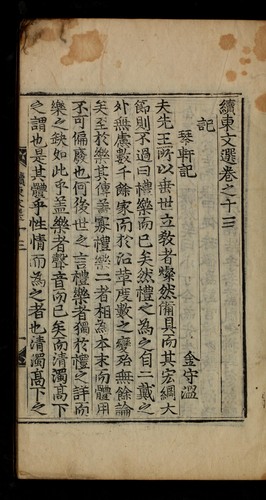 續東文選卷之十三
記
琴軒記
金守溫
夫先王所以垂世立敎者燦然備具而其宏綱大
節則不過曰禮樂而已矣然禮之爲之自二戴之
外無慮數千餘家而於沿革度數之變殆無餘論
矣至於樂其傳盖寡禮樂二者相爲本末而體用
不可偏廢也何後世之言禮樂者獨於禮之詳而
樂之缺如此乎盖樂者聲音而已矣而清濁高下
之謂也是其體乎性情而爲之者也清濁高下之